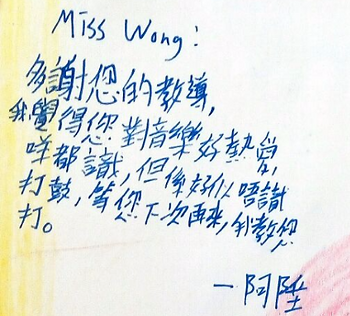 Miss Wong:
多謝您的教導,
我覺得您對音樂好熱愛,
咩都識,但係好似唔識
打鼓,等您下次再來,我教您
打。
—阿陞